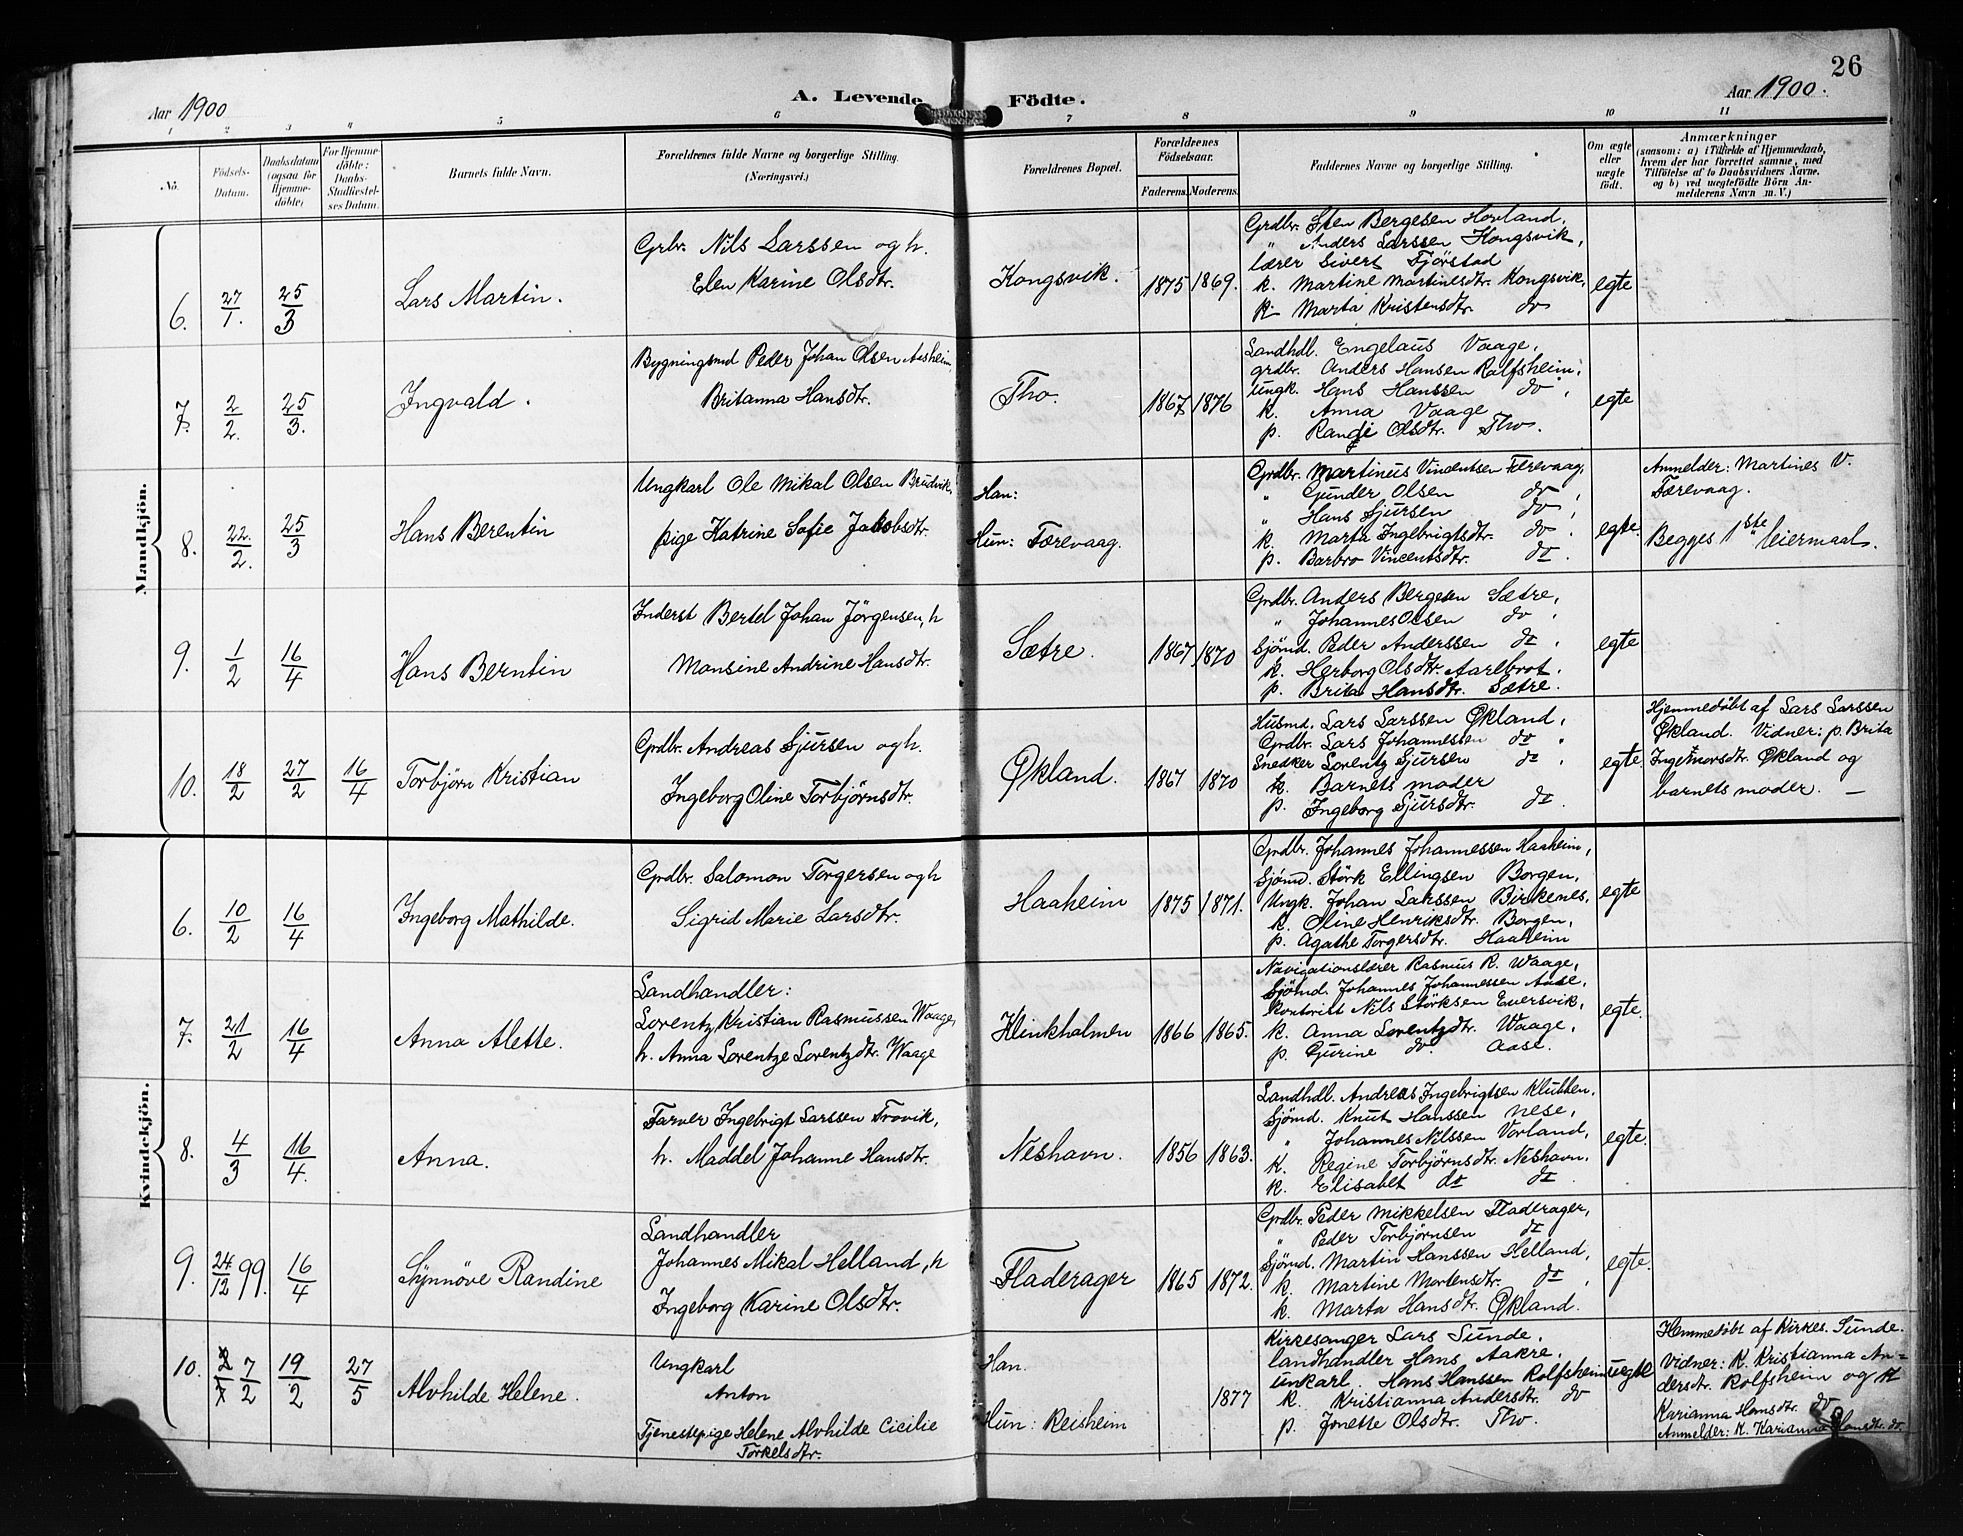 26
Aar 1900
A. Levende Födte.
Aar 1900.
1 2 3 4 5 6 7 8 9 10 11
No.
Födsels-
Datum.
Daabsdatum
(ogsaa for
Hjemme-
döbte)
For Hjemme-
döbte:
Daabs-
Stadfæstel-
ses Datum.
Barnets fulde Navn.
Forældrenes fulde Navne og borgerlige Stilling.
(Næringsvei.)
Forældrenes Bopæl.
Forældrenes
Födselsaar.
Faderens. Moderens.
Faddernes Navne og borgerlige Stilling.
Om ægte
eller
uægte
födt.
Anmærkninger
(saasom: a) i Tilfælde af Hjemmedaab,
hvem der har forrettet samme, med
Tilföielse af to Daabsvidners Navne.
og b) ved uægtefödte Börn An-
melderens Navn m. V.)
Mandkjön.
6. 27/1. 25/3
Lars Martin.
Grbr. Nils Larssen og h.
Elen Karine Olsdtr.
Kongsvik. 1875 1869.
Grdbr. Sten Bergesen Hovland,
" Anders Larssen Kongsvik,
lærer Sivert Fjörstad
k. Martine Martinesdtr. Kongsvik,
k. Marta Kristensdtr. do
egte
7. 2/2. 25/3.
Ingvald.
Bygningsmd Peder Johan Olsen Aasheim,
Britanna Hansdtr.
Tho. 1867 1876
Landhdl. Engelaus Vaage,
grdbr. Anders Hansen Rolfsheim,
ungk. Hans Hanssen do,
k. Anna Vaage
p. Randi Olsdtr. Tho.
egte
8. 22./2. 25/3
Hans Berentin
Ungkarl Ole Mikal Olsen Brudvik,
pige Katrine Sofie Jakobsdtr.
Han:
Hun: Færevaag.
Grdbr. Martinus Vincentsen Færevaag,
" Gunder Olsen do,
" Hans Sjursen do,
k. Marta Ingebrigtsdtr. do.
p. Barbro Vincentsdtr. do.
egte.
Anmelder: Martines V.
Færevaag.
Begges 1ste leiermaal.
9. 1/2 16/4
Hans Berntin
Inderst Bertel Johan Jörgensen, h
Monsine Andrine Hansdtr.
Sætre. 1867 1870
Grdbr. Anders Bergesen Sætre,
" Johannes Olsen do,
Sjömd. Peder Anderssen do,
k. Herborg Olsdtr. Aarlbrot.
p. Brita Hansdtr. Sætre.
egte
10. 18/2 27/2 16/4
Torbjörn Kristian
Grdbr. Andreas Sjursen og h.
Ingeborg Oline Torbjörnsdtr.
Økland. 1867 1870
Husmd. Lars Larssen Økland,
Grdbr. Lars Johannessen do,
Snedker Lorentz Sjursen do,
k. Barnets moder
p. Ingeborg Sjursdtr. do.
egte.
Hjemmedöbt af Lars Larssen
Økland. Vidner: p. Brita
Ingemarsdtr. Økland og
barnets moder. —
Kvindekjön.
6. 10/2 16/4
Ingeborg Mathilde.
Grdbr. Salomon Torgersen og h
Sigrid Marie Larsdtr.
Haaheim 1875 1871.
Grdbr. Johannes Johannessen Haaheim,
Sjömd. Störk Ellingsen Borgen,
Ungk. Johan Larssen Birkenes,
k. Oline Henriksdtr. Borgen,
p. Agathe Torgersdtr. Haaheim
egte
7. 21/2 16/4
Anna Alette.
Landhandler:
Lorentz Kristian Rasmussen Waage,
h. Anna Lorentze Lorentzdtr. Waage
Klinkholmen 1866 1865.
Navigationslærer Rasmus R. Waage,
Sjömd. Johannes Johannessen Aase,
Kontorist Nils Störksen Eversvik,
k. Anna Lorentzdtr. Waage,
p. Gurine do. Aase.
egte.
8. 4/3 16/4.
Anna.
Farver Ingebrigt Larssen Trovik,
h. Maddel Johanne Hansdtr.
Neshavn. 1856 1863.
Landhdl. Andreas Ingebrigtsen Klubben.
Sjömd. Knut Hanssen Nese,
" Johannes Nilssen Vorland,
K. Regine Torbjörnsdtr. Neshavn.
k. Elisabet do do.
egte.
9. 24/12 99. 16/4
Synnöve Randine
Landhandler
Johannes Mikal Helland, h
Ingeborg Karine Olsdtr.
Fladerager 1865 1872.
Grdbr. Peder Mikkelsen Fladerager,
" Peder Torbjörnsen do
Sjömd. Martin Hanssen Helland,
k. Martine Mortensdtr. do,
k. Marta Hansdtr. Økland.
egte.
10. 7/2 19/2 27/5
Alvhilde Helene.
Ungkarl
Anton
Tjenestepige Helene Alvhilde Cicilie
Torkelsdtr.
Han.
Hun: Reisheim 1877
Kirkesanger Lars Sunde,
landhandler Hans Aakre,
unkarl. Hans Hanssen Rolfsheim
k. Kristianna Andersdtr. do
p. Jonette Olsdtr. Tho.
uegte
Hemmedöbt af Kirkes. Sunde.
Vidner: K. Kristianna An-
dersdtr. Rolfsheim og K
Karianna Hansdtr. do
Anmelder: K. Karianna Hansdtr. do.